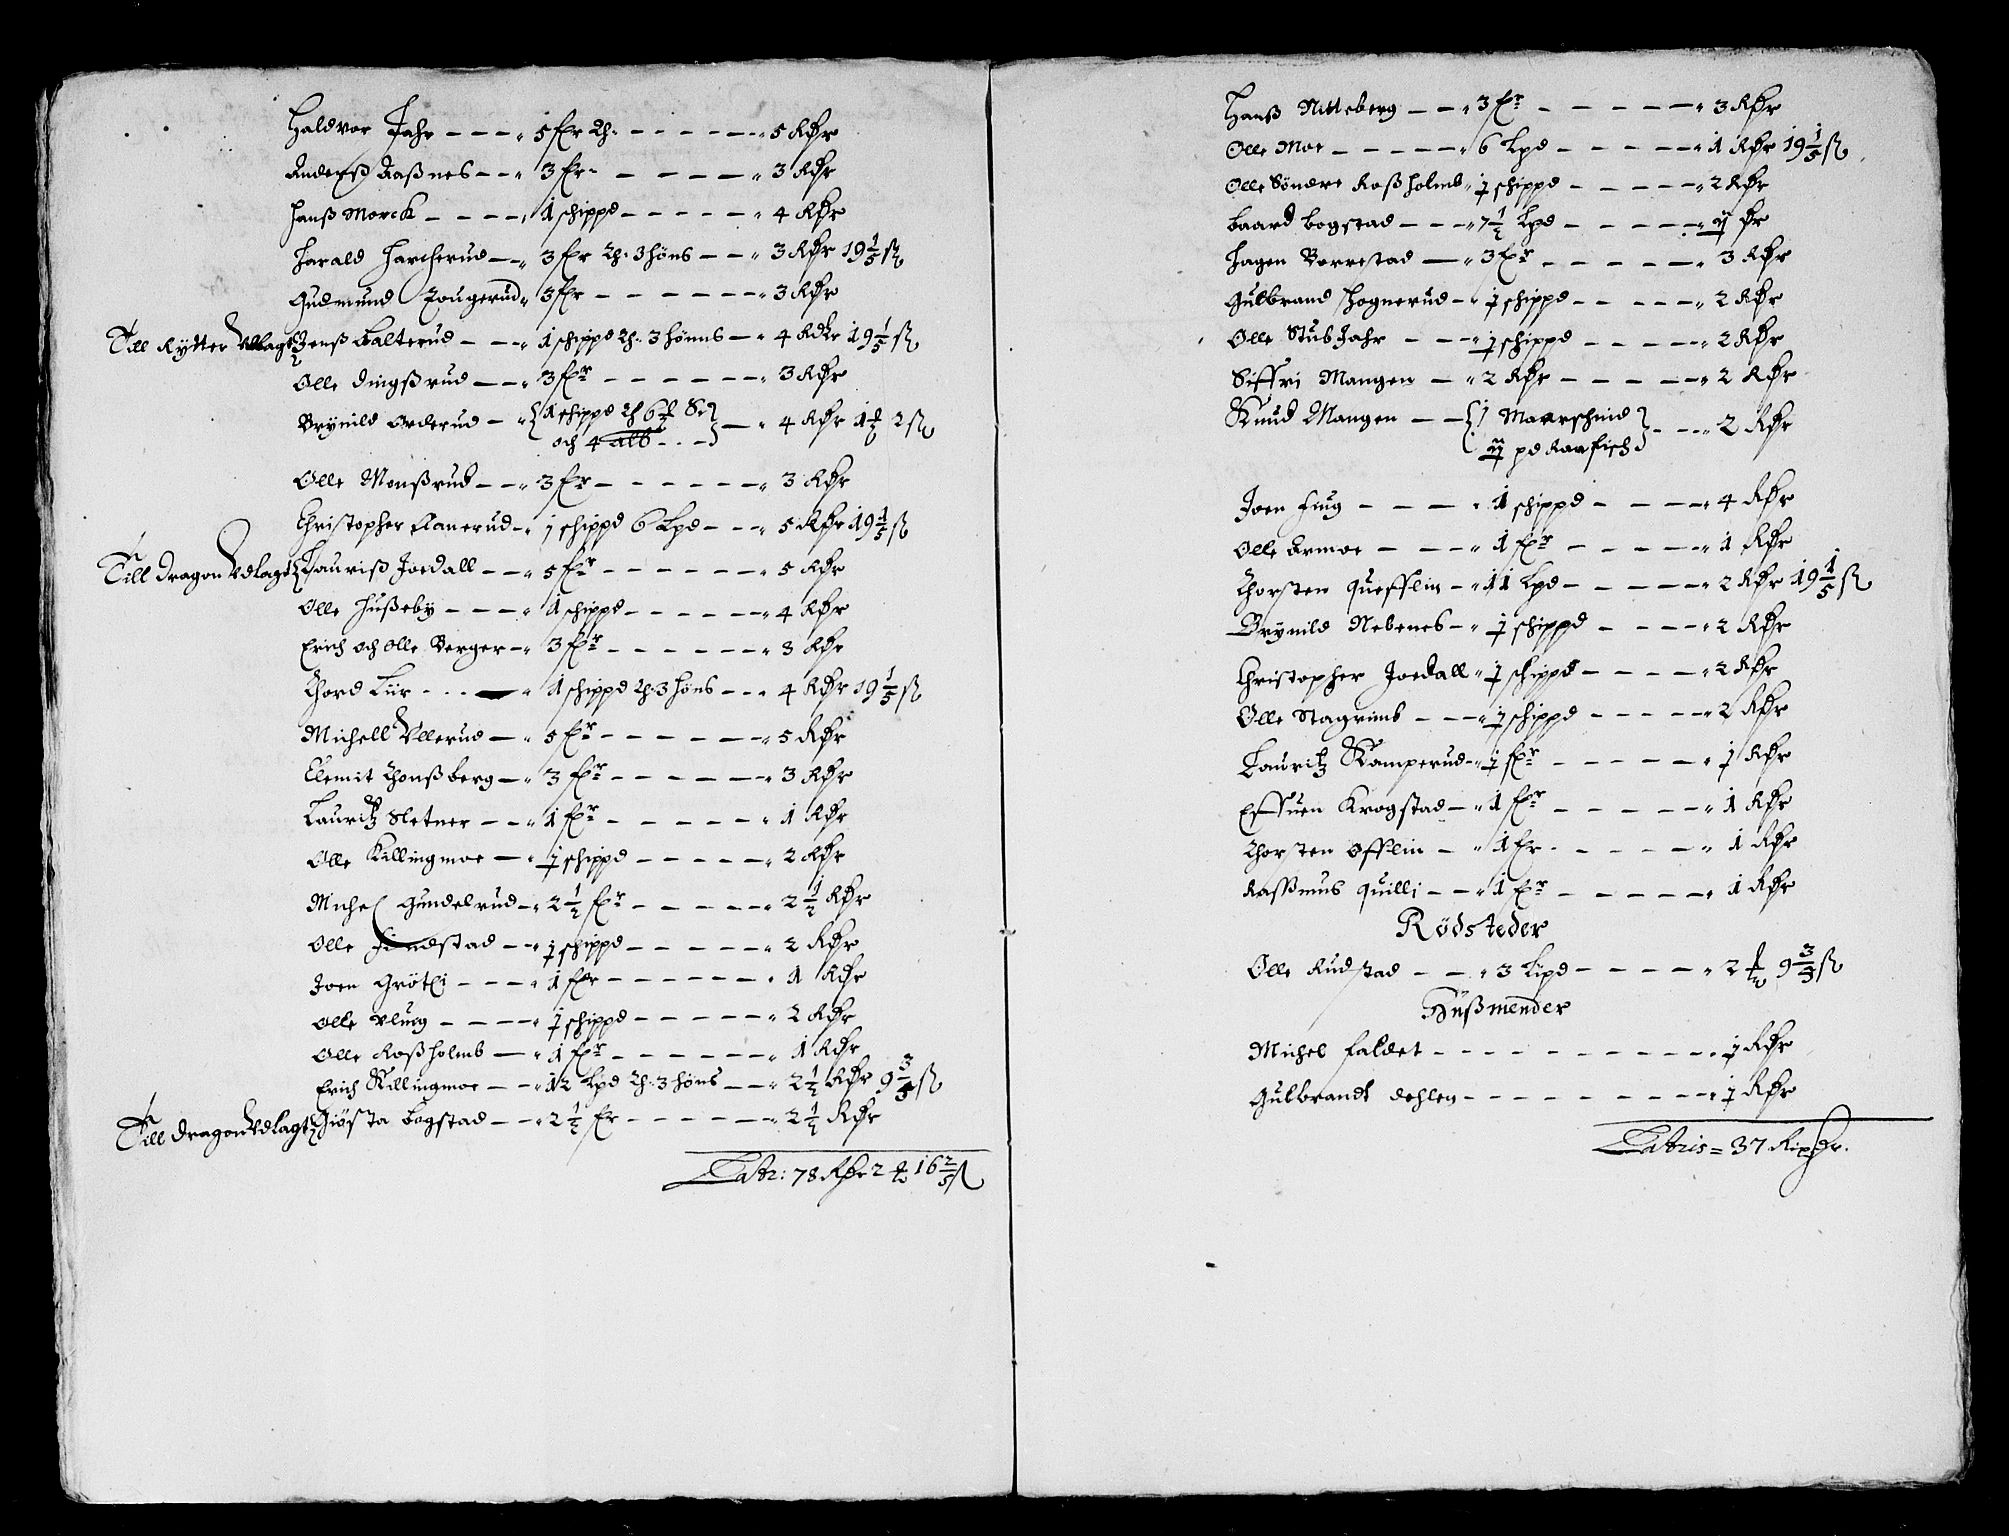 Haldvor Jahr – – – 5 fr 2h. – – – – 5 Rdr
Anderß Aaßnes – – 3 fr – – – – 3 Rdr
Hanß Morck – – – – 1 schippd – – – – 4 Rdr
Harald Harcherud – – 3 fr 2h. 3 höns – – 3 Rdr 19 1/5 ß
Gudmund Zougerud 3 fr – – – – – 3 Rdr
Till Rytter Udlagt Jenß Balterud – – – 1 schippd 2h. 3 hönns – 4 Rdr 19 1/5 ß
Olle dingßrud – – 3 fr – – – – – 3 Rdr
Brynild Orderud – 1 schippd 2h 6 ½ – 4 Rdr 1 2 ß
och 4 alb – – –
Olle Monßrud – – 3 fr – – – – – 3 Rdr
Christopher flanerud – 1 schippd 6 Lpd – – – 5 Rdr 19 1/5 ß
Till dragon Udlagt Lauriß Joedall – – 5 fr – – – – – 5 Rdr
Olle Hußeby – – – – 1 schippd – – – – – 4 Rdr
Erich och Olle Berger – 3 fr – – – – – 3 Rdr
Thord Liir – – – 1 schippd 2h. 3 höns – – – 4 Rdr 19 1/5 ß
Michell Ullerud – 5 fr – – – – – 5 Rdr
Clemit Thonßberg – 3 fr – – – – – 3 Rdr
Lauritz Sletner – – – 1 fr – – – – – 1 Rdr
Olle Killingmoe – – ½ schippd – – – – – 2 Rdr
Michel Gundelrud – 2 ½ fr – – – – – 2 ½ Rdr
Olle Findstad – – ½ schippd – – – – – 2 Rdr
Joen Grötli – – – – 1 fr – – – – – 1 Rdr
Olle Ulung – – – – ½ schippd – – – – – 2 Rdr
Olle Roßholmb – – 1 fr – – – – – 1 Rdr
Erich Killingmoe – – 12 Lpd 2h. 3 höns – – 2 ½ Rdr 9 3/5 ß
Till dragon Udlagt Giösta Bogstad – – 2 ½ fr – – – – – 2 ½ Rdr
Latr: 78 Rdr 2 16 2/5 ß
Hanß Nitteberg – – 3 fr – – – – – 3 Rdr
Olle Moe – – – – – 6 Lpd – – – – – 1 Rdr 19 1/5 ß
Olle Söndre Roßholmb ½ schippd – – – – – 2 Rdr
Baard Bogstad – – – 7 ½ Lpd – – – – –
Hagen Borrestad – – 3 fr – – – – – 3 Rdr
Gulbrand Hognerud – ½ schippd – – – – – 2 Rdr
Olle Stub Jahr – – – ½ schippd – – – – – 2 Rdr
Siffri Mangen – 2 Rdr – – – – – 2 Rdr
Knud Mangen – – 1 Maarschind – – – 2 Rdr
pd Raafisch
Joen fiug – – – – 1 schippd – – – – 4 Rdr
Olle Armoe – – – 1 fr – – – – 1 Rdr
Thorsten Quefflin – 11 Lpd – – – – – 2 Rdr 19 1/5 ß
Brynild Nebenes – ½ schippd – – – – 2 Rdr
Christopher Joedall ½ schippd – – – – 2 Rdr
Olle Stagrimb – – – ½ schippd – – – – – 2 Rdr
Lauritz Kamperud – ½ fr – – – – – ½ Rdr
Effuen Krogstad – 1 fr – – – – – 1 Rdr
Thorsten Offlin – 1 fr – – – – – 1 Rdr
Raßmus Quilli – – 1 fr – – – – – 1 Rdr
Rödsteder
Olle Rudstad – – 3 Lipd – – – – – 2 9 3/5 ß
Hußmender
Michel faldet – – – – – – – – – ½ Rdr
Gulbrandt dehlen – – – – – – – – – ½ Rdr
Latris = 37 Ripdr.